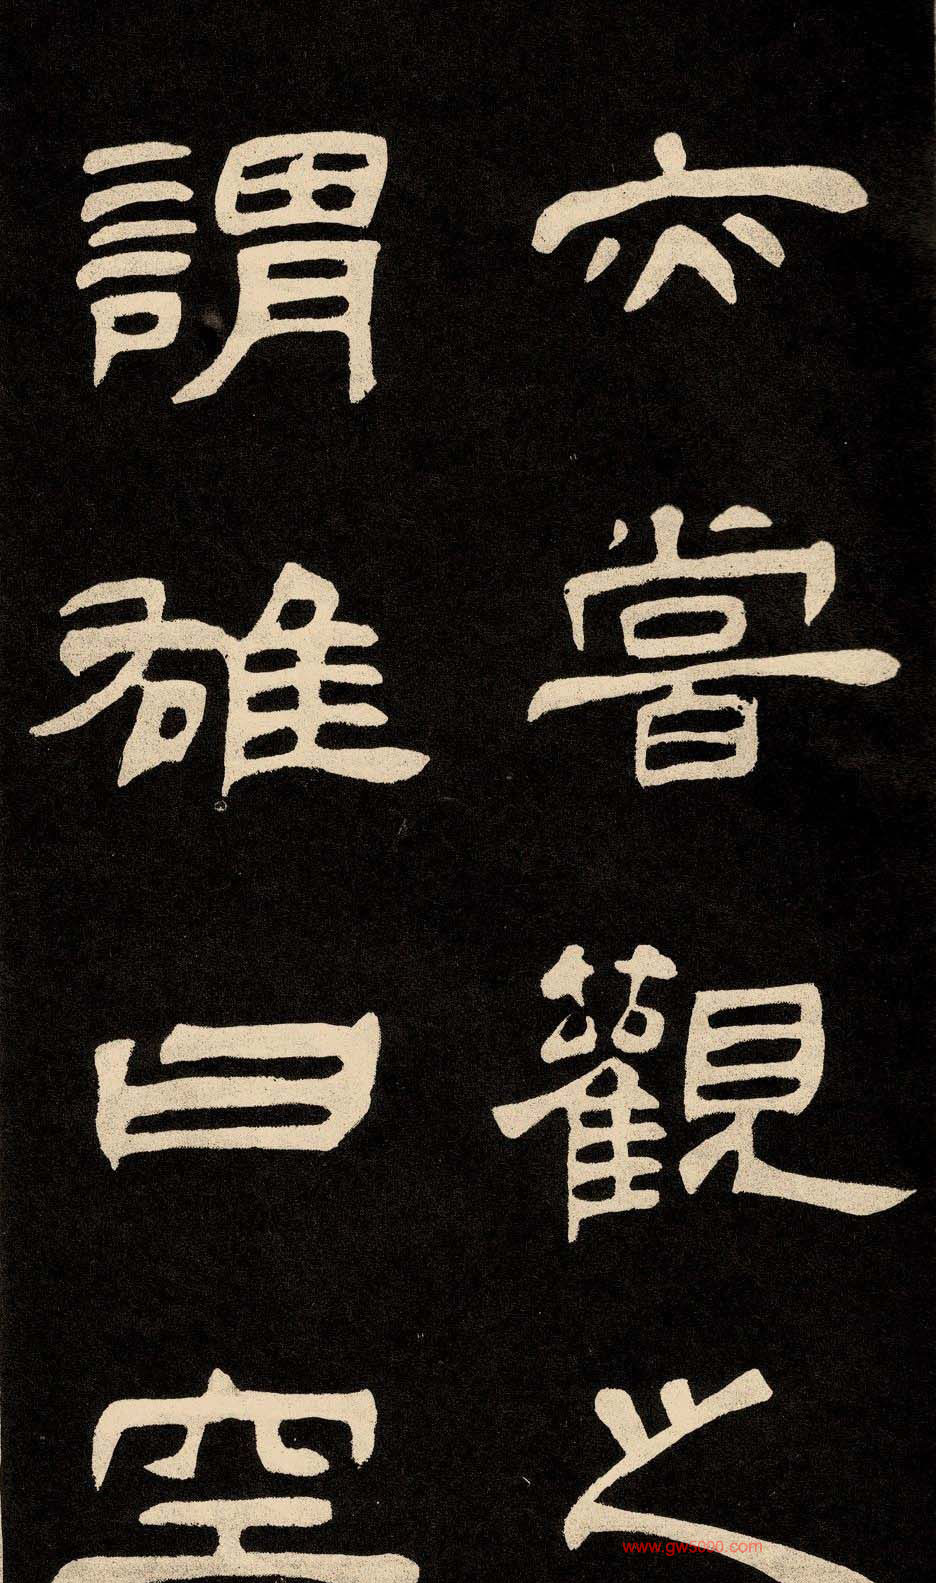 亦嘗觀之
謂雄曰空
www.gw5000.com